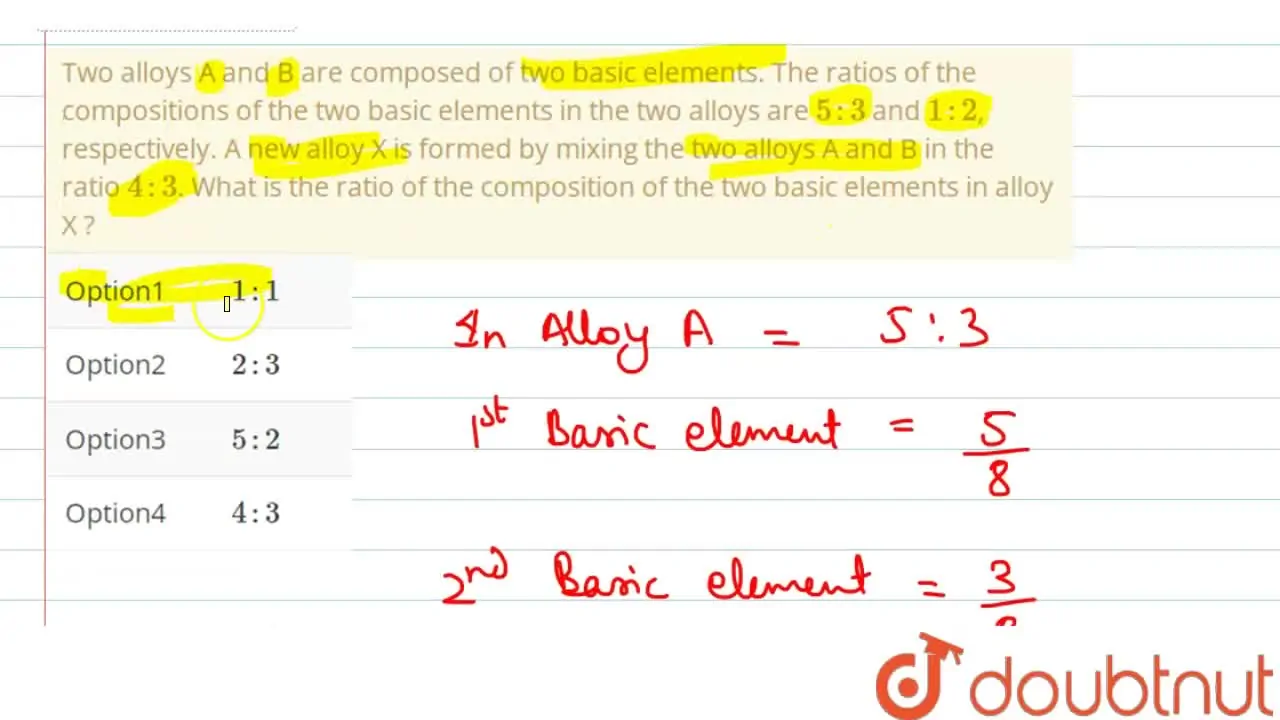 Two alloys A and B are composed of two basic elements. The ratios of the
compositions of the two basic elements in the two alloys are 5 : 3 and 1 : 2,
respectively. A new alloy X is formed by mixing the two alloys A and B in the
ratio 4 : 3. What is the ratio of the composition of the two basic elements in alloy
X ?
Option1 1 : 1
Option2 2 : 3
Option3 5 : 2
Option4 4 : 3
In Alloy A = 5 : 3
1st Basic element = 5/8
2nd Basic element = 3/
doubtnut